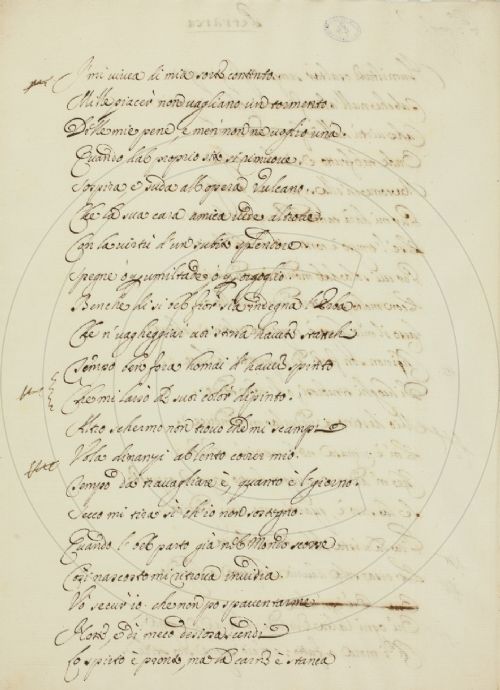 I' mi vivea di mia sorte contento.
Mille piacer non vagliano un tormento.
Delle mie pene, è men non ne voglio una.
Quando dal proprio sito si rimuove
Sospira e suda all'opera Vulcano.
Che la sua cara amica vede altrove.
Con la virtù d'un subito splendore.
Spegne o per umiltade o per orgoglio.
Benche di si bel fior sia indegna l'erba
Che n' vagheggiar voi stessa havete stanchi
Tempo ben fora homai d' haver spinto
Che mi lasciò de suoi color dipinto.
Altro schermo non trovo che mi scampi
Vola dinanzi al lento correr mio.
Tempo da travagliare è, quanto è 'l giorno.
Seco mi tira si ch' io non sostegno.
Quando 'l bel parto già nel Mondo scorse
Così nascosto mi ritrova invidia.
Vo securo io. che non po spaventarme
Altro, e di meco destosa scendi
Lo spirto è pronto, ma la carne è stanca